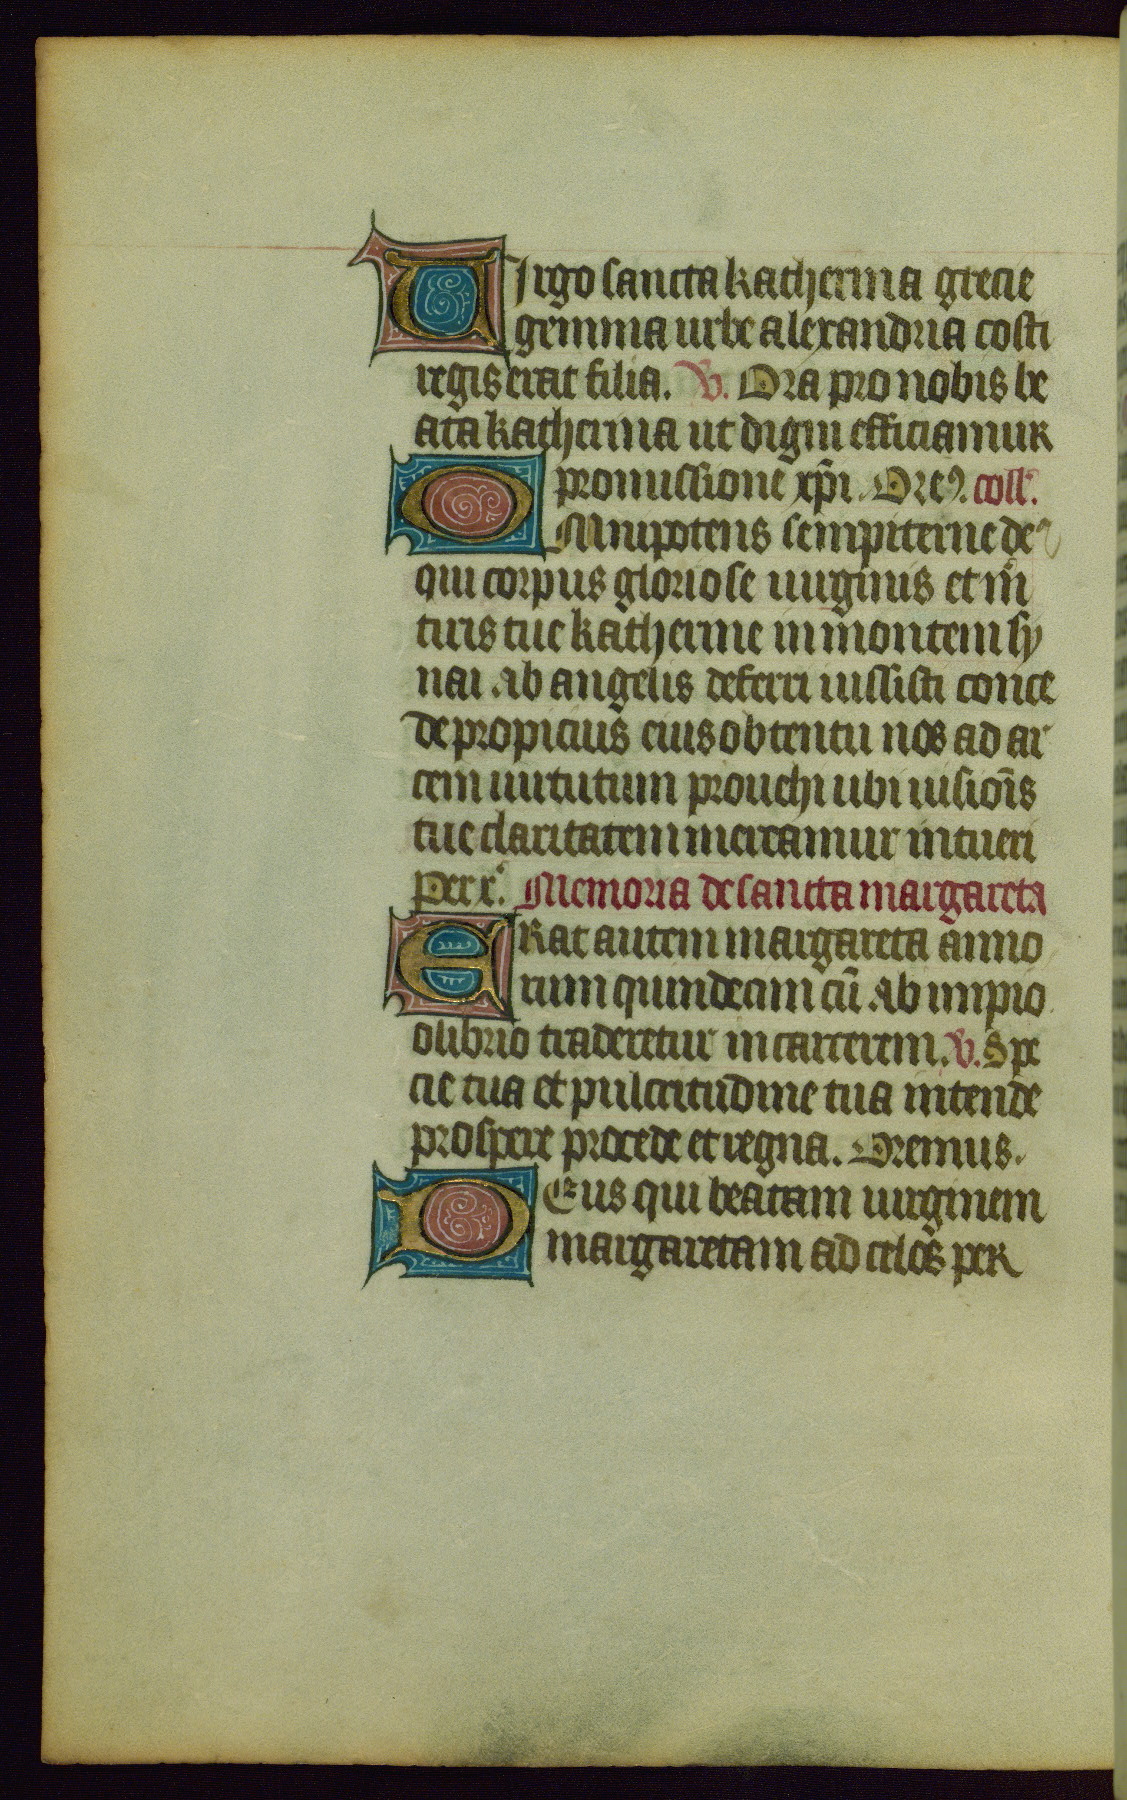 Virgo sancta katherina grecie
gemma urbe alexandria costi
regis erat filia. V. Ora pro nobis be
ata katherina ut digni efficiamur
promissione xp̄i. Orem9. coll'.
Omnipotens sempiterne de9
qui corpus gloriose uirginis et m̄
tiris tue katherine in montem sy
nai ab angelis deferri iussisti conce
de propicius eius obtentu nos ad ar
cem uirtutum prouehi ubi uisiōis
tue claritatem mereamur intueri
Per x'. Memoria de sancta margareta
Erat autem margareta anno
rum quindecim cū ab impio
olibrio traderetur in carcerem. V. Spe
cie tua et pulcritudine tua intende
prospere procede et regna. Oremus.
Deus qui beatam uirginem
margaretam ad celos per